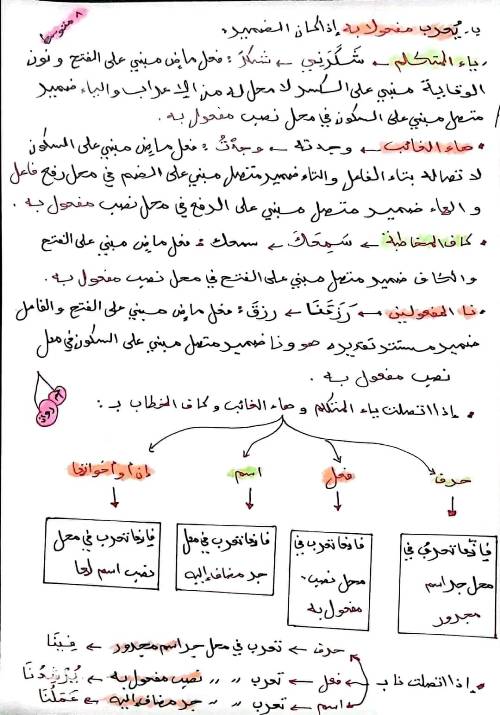 ٨ متوسط
ب- يُعرب مفعولا به إذا كان الضمير:
ياء المتكلم ← شَكَرَنِي ← شكرَ: فعل ماضٍ مبني على الفتح و نون
الوقاية مبني على الكسر لا محل له من الإعراب والياء ضمير
متصل مبني على السكون في محل نصب مفعول به.
• هاء الغائب ← وجدته ← وجدْتُ: فعل ماضٍ مبني على السكون
لاتصاله بتاء الفاعل والتاء ضمير متصل مبني على الضم في محل رفع فاعل
و الهاء ضمير متصل مبني على الرفع في محل نصب مفعول به.
• كاف المخاطبة ← سَمِعَكَ ← سمعك: فعل ماضٍ مبني على الفتح
والكاف ضمير متصل مبني على الفتح في محل نصب مفعول به.
• نا المفعولين ← رَزَقَنَا ← رزقَ: فعل ماضٍ مبني على الفتح والفاعل
ضمير مستتر تقديره هو ونا ضمير متصل مبني على السكون في محل
نصب مفعول به.
• إذا اتصلت ياء المتكلم و هاء الغائب و كاف الخطاب بـ:
حرف فعل اسم إنّ وأخواتها
فإنّها تعرب في محل جر اسم مجرور
فإنها تعرب في محل نصب مفعول به
فإنها تعرب في محل جر مضاف إليه
فإنها تعرب في محل نصب اسم لها
حرف ← تعرب في محل جر اسم مجرور ← فِينَا
• إذا اتصلت نا بـ فعل ← تعرب " " نصب مفعول به ← يُرْشِدُنَا
اسم ← تعرب " " جر مضاف إليه ← عَمَلُنَا